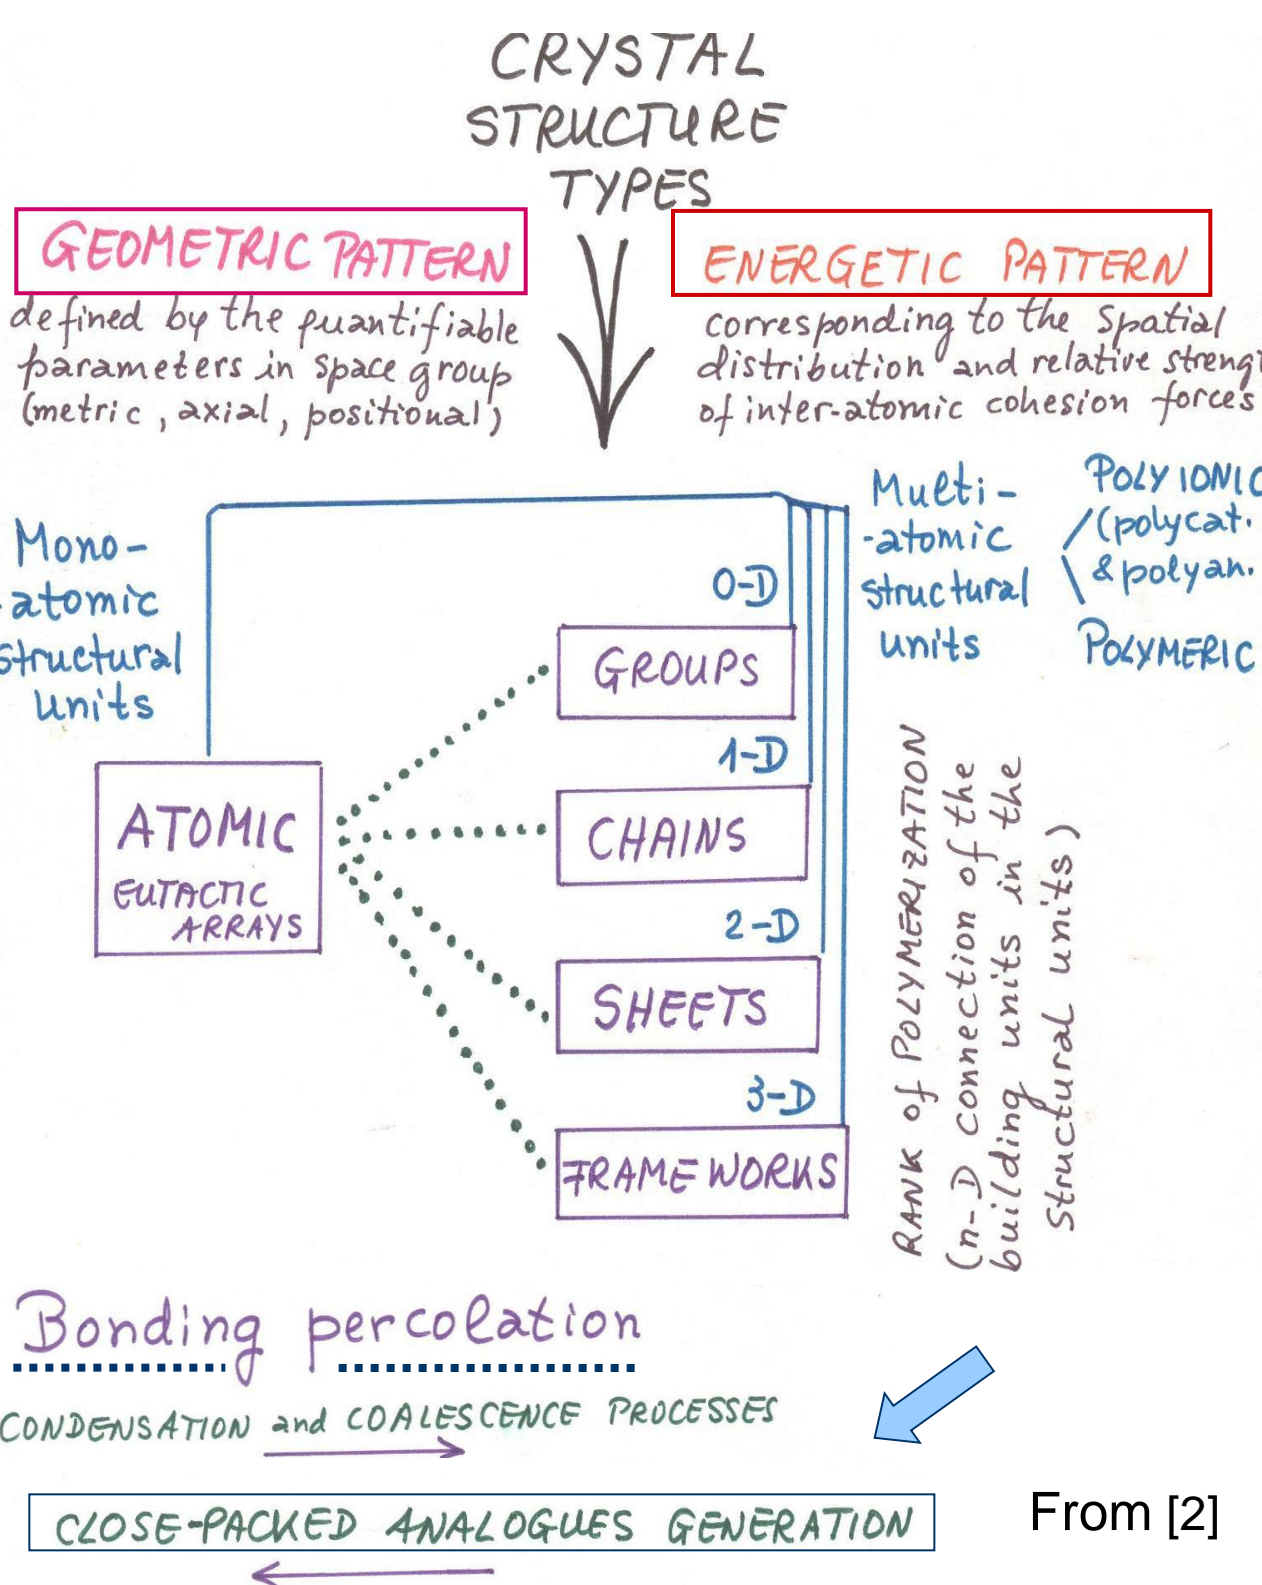 CRYSTAL
STRUCTURE
TYPES
GEOMETRIC PATTERN
defined by the quantifiable
parameters in space group
(metric, axial, positional)
ENERGETIC PATTERN
corresponding to the spatial
distribution and relative strengt
of inter-atomic cohesion forces
Mono-
-atomic
structural
units
Multi-
-atomic
structural
units
POLYIONIC
(polycat.
& polyan.
POLYMERIC
0-D
GROUPS
1-D
CHAINS
2-D
SHEETS
3-D
FRAMEWORKS
ATOMIC
EUTACTIC
ARRAYS
RANK of POLYMERIZATION
(n-D connection of the
building units in the
structural units)
Bonding percolation
CONDENSATION and COALESCENCE PROCESSES
CLOSE-PACKED ANALOGUES GENERATION
From [2]